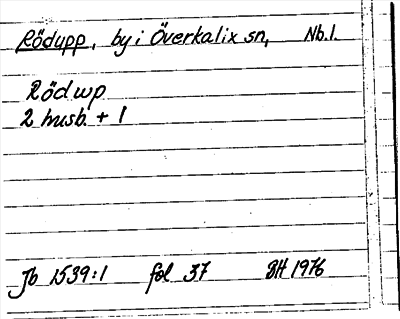 Rödupp, by i Överkalix sn, Nb.l.
Rödwp
2 husb. + 1
Jb 1539:1 fol 37 BH 1976